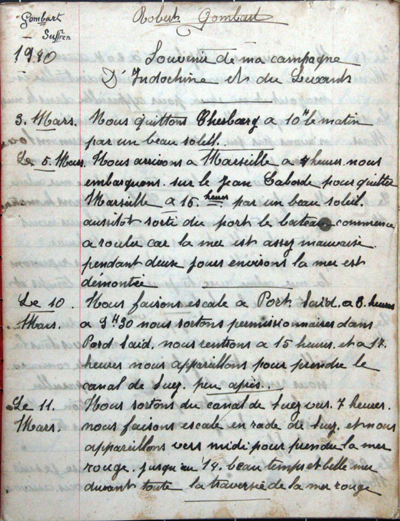 Gombart
Suffren
Robert Gombart
1940
Souvenir de ma campagne
D'Indochine et du Levant
3. Mars. Nous quittons Cherbourg a 10h le matin
par un beau soleil..
Le 5. Mars. Nous arrivons a Marseille a heures. nous
embarquons. sur le Jean Laborde pour quitter
Marseille a 15. heures par un beau soleil.
aussitot sorti du port le bateau commence
a rouler car la mer est assez mauvaise
pendant deux jours environs la mer est
demontée
Le 10. Nous faisons escale a Port. Said. a 8. heures
Mars. a 9H30 nous sortons permissionnaires dans
Pord Said, nous rentions a 15 heures. et a 17.
heures nous apparillons pour prendre le
canal de Suez. peu après..
Le 11. Nous sortons du canal de Suez vers. 7 heures.
Mars. nous faisons escale en rade de Suez. et nous
apparillons vers midi pour prendre la mer
rouge. jusqu'au 14. beau temps et belle mer
durant toute la traversée de la mer rouge